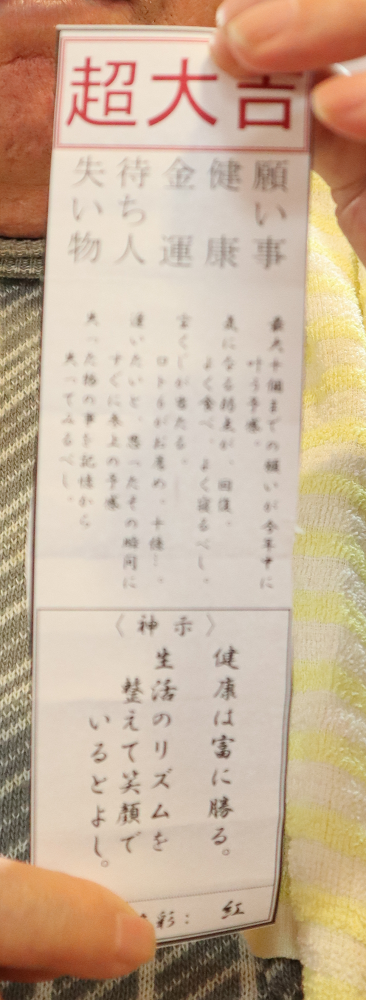 超大吉
願い事
健康
金運
待ち人
失い物
最大十個までの願いが今年中に
叶う予感。
気になる持点が、回復。
よく食べ、よく寝るべし。
宝くじが当たる。
ロト6がお薦め。十億…。
逢いたいと、思ったその瞬間に
すぐに参上の予感
失った物の事を記憶から
失ってみるべし。
〈神示〉
健康は富に勝る。
生活のリズムを
整えて笑顔で
いるとよし。
彩：紅